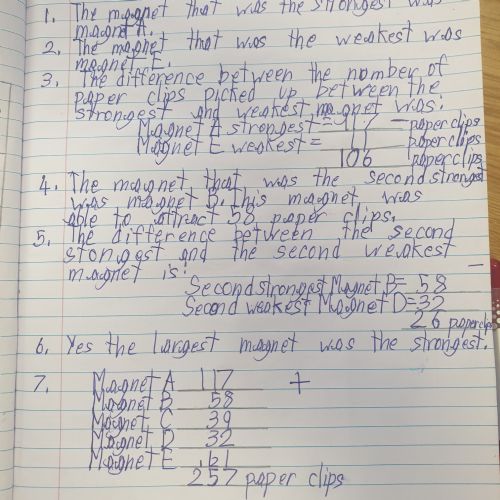 1. The magnet that was the strongest was
magnet A.
2. The magnet that was the weakest was
magnet E.
3. The difference between the number of
paper clips picked up between the
strongest and weakest magnet was:
Magnet A strongest = 117 paper clips
Magnet E weakest = paper clips
106 paper clips
4. The magnet that was the second strongest
was magnet B. This magnet was
able to attract 58 paper clips.
5. The difference between the second
stongest and the second weakest
magnet is:
Second strongest Magnet B= 58
Second weakest Magnet D=32
26 paper clips
6. Yes the largest magnet was the strongest.
7. Magnet A 117 +
Magnet B 58
Magnet C 39
Magnet D 32
Magnet E
257 paper clips